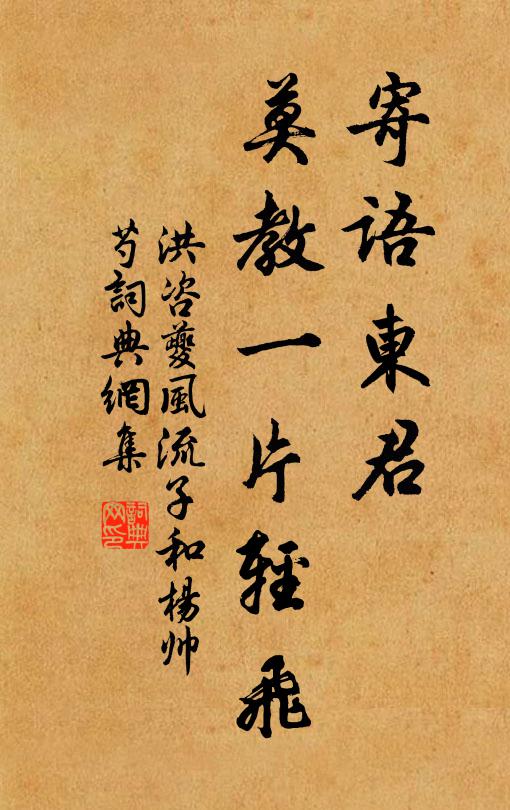 寄語東君
莫教一片輕飛
洪咨夔風流子和楊帅
芍詞典網集
詞典
网印